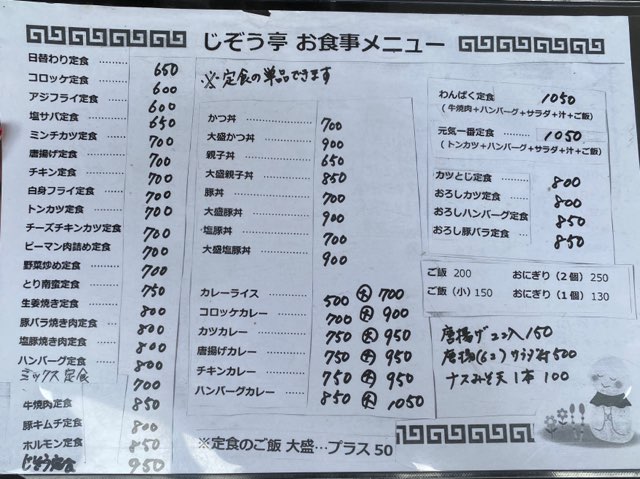 じぞう亭 お食事メニュー
日替わり定食 ……… 650
コロッケ定食 ……… 600
アジフライ定食 ……… 600
塩サバ定食 ……… 650
ミンチカツ定食 ……… 700
唐揚げ定食 ……… 700
チキン定食 ……… 700
白身フライ定食 ……… 700
トンカツ定食 ……… 700
チーズチキンカツ定食 …… 700
ピーマン肉詰め定食 …… 700
野菜炒め定食 ……… 700
とり南蛮定食 ……… 750
生姜焼き定食 ……… 800
豚バラ焼き肉定食 ……… 800
塩豚焼き肉定食 ……… 800
ハンバーグ定食 ……… 800
ミックス定食 700
牛焼肉定食 ……… 850
豚キムチ定食 ……… 800
ホルモン定食 ……… 850
じぞう定食 950
※定食の単品できます
かつ丼 ……… 700
大盛かつ丼 ……… 900
親子丼 ……… 650
大盛親子丼 ……… 850
豚丼 ……… 700
大盛豚丼 ……… 900
塩豚丼 ……… 700
大盛塩豚丼 ……… 900
カレーライス ……… 500 大 700
コロッケカレー ……… 700 大 900
カツカレー ……… 750 大 950
唐揚げカレー ……… 750 大 950
チキンカレー ……… 750 大 950
ハンバーグカレー ……… 850 大 1050
※定食のご飯 大盛…プラス 50
わんぱく定食 ……… 1050
(牛焼肉+ハンバーグ+サラダ+汁+ご飯)
元気一番定食 ……… 1050
(トンカツ+ハンバーグ+サラダ+汁+ご飯)
カツとじ定食 ……… 800
おろしカツ定食 ……… 800
おろしハンバーグ定食 …… 850
おろし豚バラ定食 ……… 850
ご飯 200 おにぎり(2個) 250
ご飯(小) 150 おにぎり(1個) 130
唐揚げ2コ入 150
唐揚(6コ) サラダ付 500
ナスみそ天 1本 100